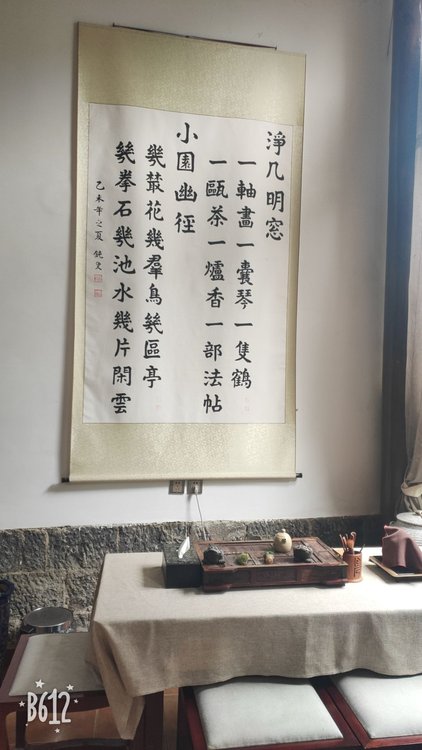 淨几明窓
一軸畫一囊琴一隻鶴
一甌茶一爐香一部法帖
小園幽徑
幾叢花幾羣鳥幾區亭
幾拳石幾池水幾片閑雲
乙未年之夏
B612